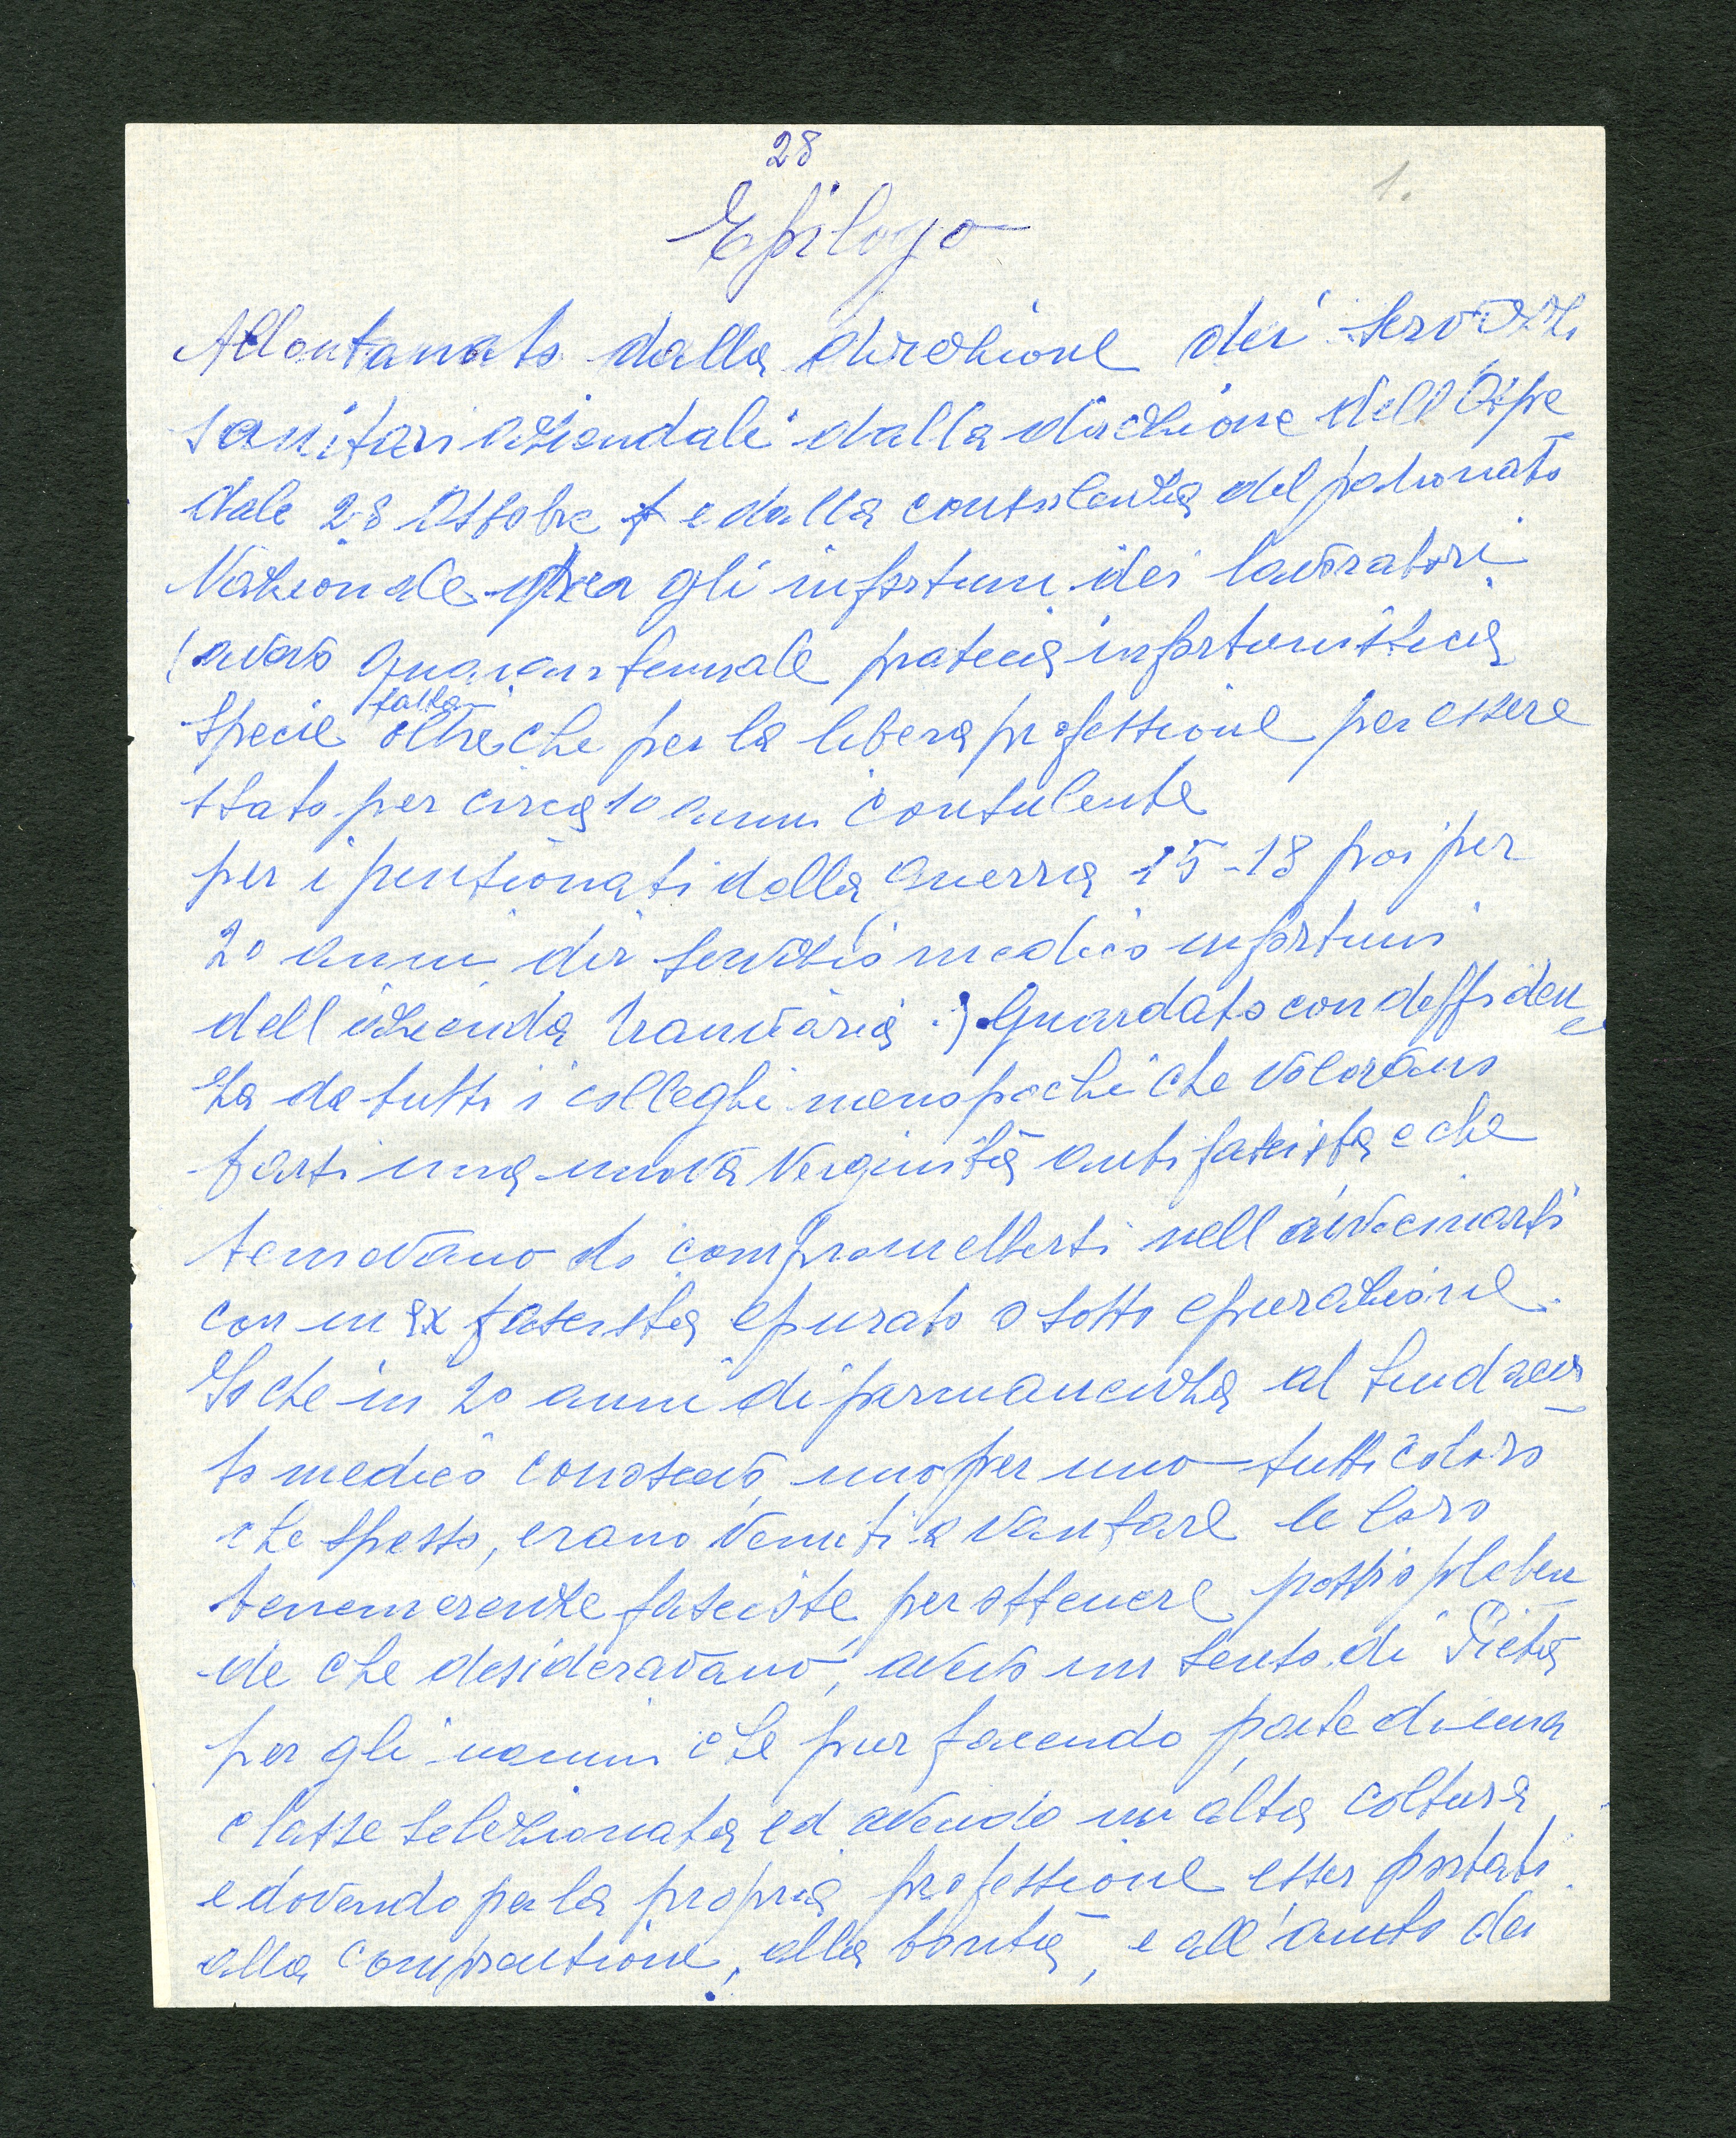 28
1.
Epilogo
Allontanato dalla direzione dei servizi
sanitari aziendali dalla direzione dell Ospe
dale 28 Ottobre e dalla consulenza del patronato
Nazionale gli infortuni dei lavoratori
(avevo quarantennale pratica infortunistica
specie fatta oltreche per la libera professione per essere
stato per circa 10 anni consulente
per i pensionati della guerra 15-18 poi per
20 anni dir servizio medico infortuni
dell azienda tranviaria.) Guardato con deffiden
za da tutti i colleghi meno pochi che volevano
farsi una nuova verginità antifascista e che
temevano di compromettersi nell avvicinarsi
con un ex fascista epurato o sotto epurazione.
Io che in 20 anni di permanenza al sindaca
to medico conoscevo uno per uno tutti coloro
che spesso, erano venuti a vantare le loro
benemerenze fasciste per ottenere posti o preben
de che desideravano, avevo un senso di Pietà
per gli uomini che pur facendo parte di una
classe selezionata ed avendo un alta coltura
e dovendo per la propria professione esser portati
alla comprensione, alla bontà, e all'aiuto dei